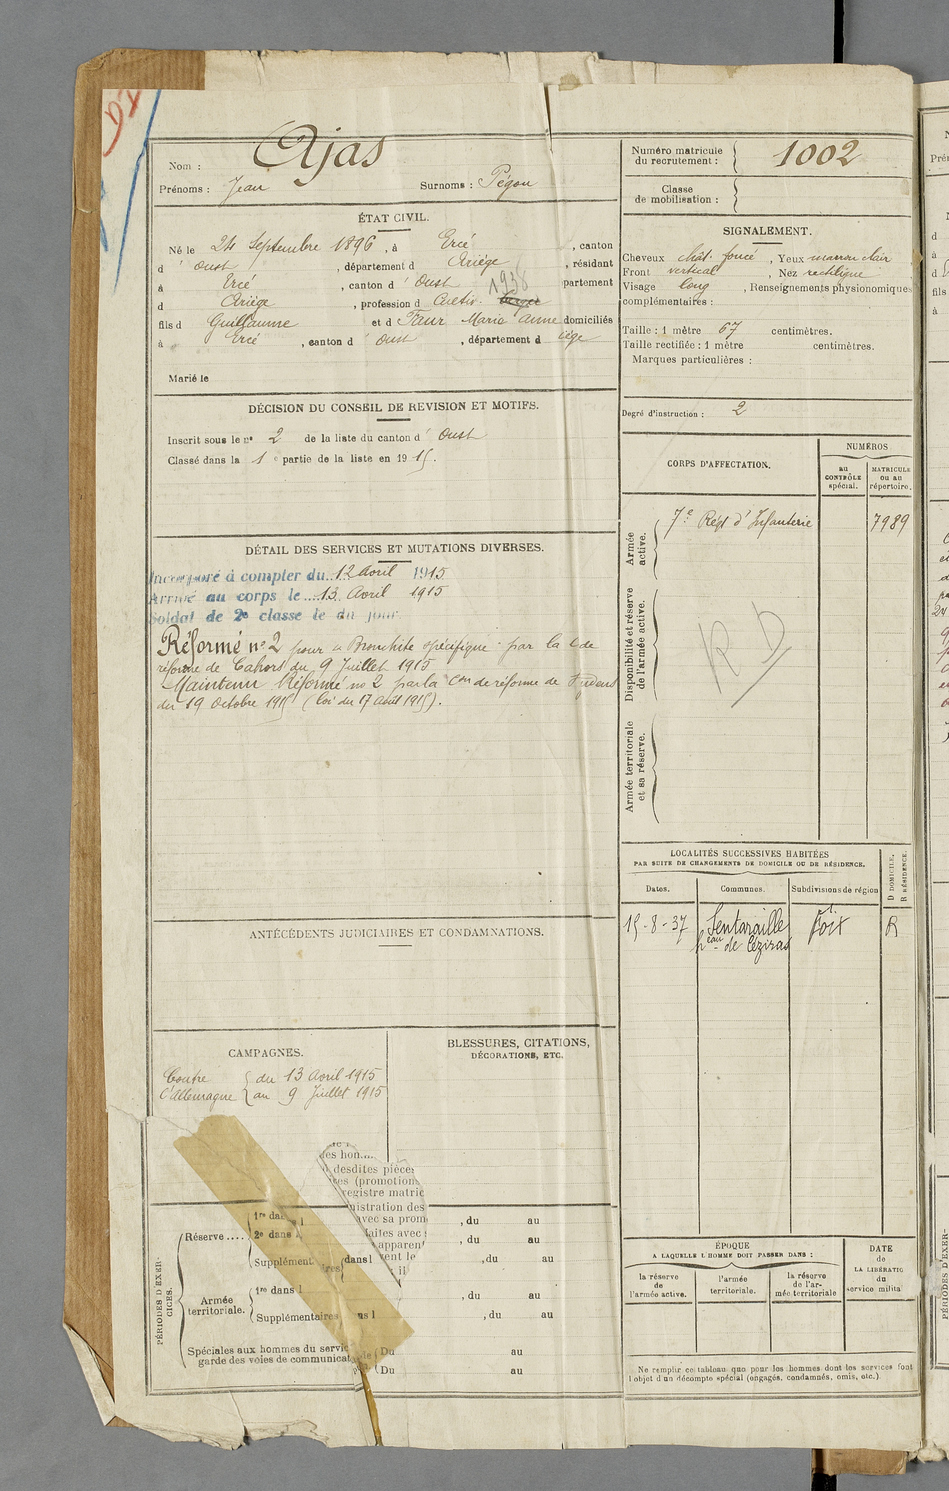 Nom : Ajas
Prénoms : Jean Surnoms : Pégou
ÉTAT CIVIL.
Né le 24 Septembre 1896, à Ercé, canton
d' Oust, département d Ariège, résidant
à Ercé, canton d' Oust 1938 partement
d Ariège, profession d Cultiv.
fils d Guillaume et d Faur Marie Anne domiciliés
à Ercé, canton d' Oust, département d iège
Marié le
DÉCISION DU CONSEIL DE REVISION ET MOTIFS.
Inscrit sous le n° 2 de la liste du canton d' Oust
Classé dans la 1e partie de la liste en 1915.
DÉTAIL DES SERVICES ET MUTATIONS DIVERSES.
Incorporé à compter du 12 Avril 1915
Arrivé au corps le 13 Avril 1915
Soldat de 2e classe le du jour
Réformé n° 2 pour "Bronchite spécifique" par la C de
réforme de Cahors du 9 Juillet 1915
Maintenu Réformé n° 2 par la Con de réforme de
du 19 Octobre 1915 (loi du 17 Août 1915).
ANTÉCÉDENTS JUDICIAIRES ET CONDAMNATIONS.
CAMPAGNES.
Contre { du 13 Avril 1915
l'Allemagne { au 9 Juillet 1915
BLESSURES, CITATIONS,
DÉCORATIONS, ETC.
des hon....
desdites pièces
(promotions
registre matric
nistration des
avec sa prom
faites avec
apparent
vent le
PÉRIODES D'EXERCICES.
Réserve ....
1re dans l , du au
2e dans l , du au
Supplément res dans l , du au
Armée
territoriale.
1re dans l , du au
Supplémentaires ans l , du au
Spéciales aux hommes du servic (Du au
garde des voies de communicat (Du au
Numéro matricule
du recrutement : 1002
Classe
de mobilisation :
SIGNALEMENT.
Cheveux chât. foncé, Yeux marron clair
Front vertical, Nez rectiligne
Visage long, Renseignements physionomiques
complémentaires :
Taille : 1 mètre 67 centimètres.
Taille rectifiée : 1 mètre centimètres.
Marques particulières :
Degré d'instruction : 2
CORPS D'AFFECTATION.
NUMÉROS
au
CONTRÔLE
spécial.
MATRICULE
ou au
répertoire.
Armée
active.
7e Régt d'Infanterie 7989
Disponibilité et réserve
de l'armée active.
RD
Armée territoriale
et sa réserve.
LOCALITÉS SUCCESSIVES HABITÉES
PAR SUITE DE CHANGEMENTS DE DOMICILE OU DE RÉSIDENCE.
D DOMICILE.
R RÉSIDENCE.
Dates. Communes. Subdivisions de région
15-8-37 Lentaraille Foix R
heau de Céziras
ÉPOQUE
A LAQUELLE L'HOMME DOIT PASSER DANS :
la réserve
de
l'armée active.
l'armée
territoriale.
la réserve
de l'ar-
mée territoriale
DATE
de
LA LIBÉRATIO
du
service milita
Ne remplir ce tableau que pour les hommes dont les services font
l'objet d'un décompte spécial (engagés, condamnés, omis, etc.).